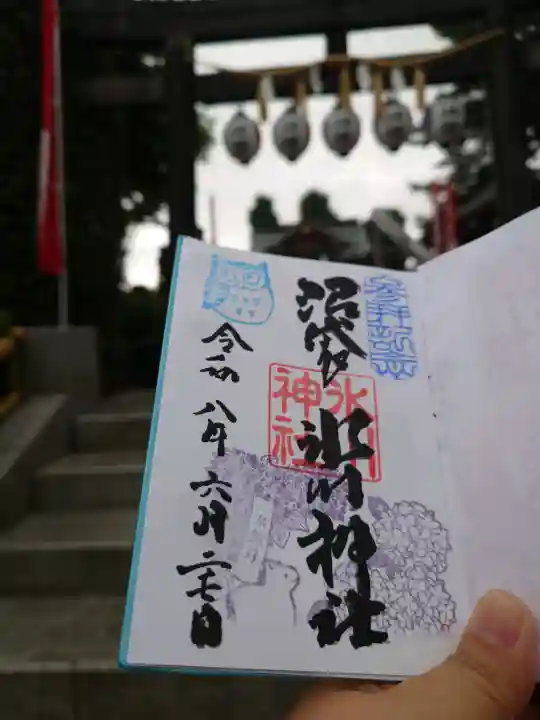 沼袋 氷川神社
氷川神社
令和八年六月二十七日